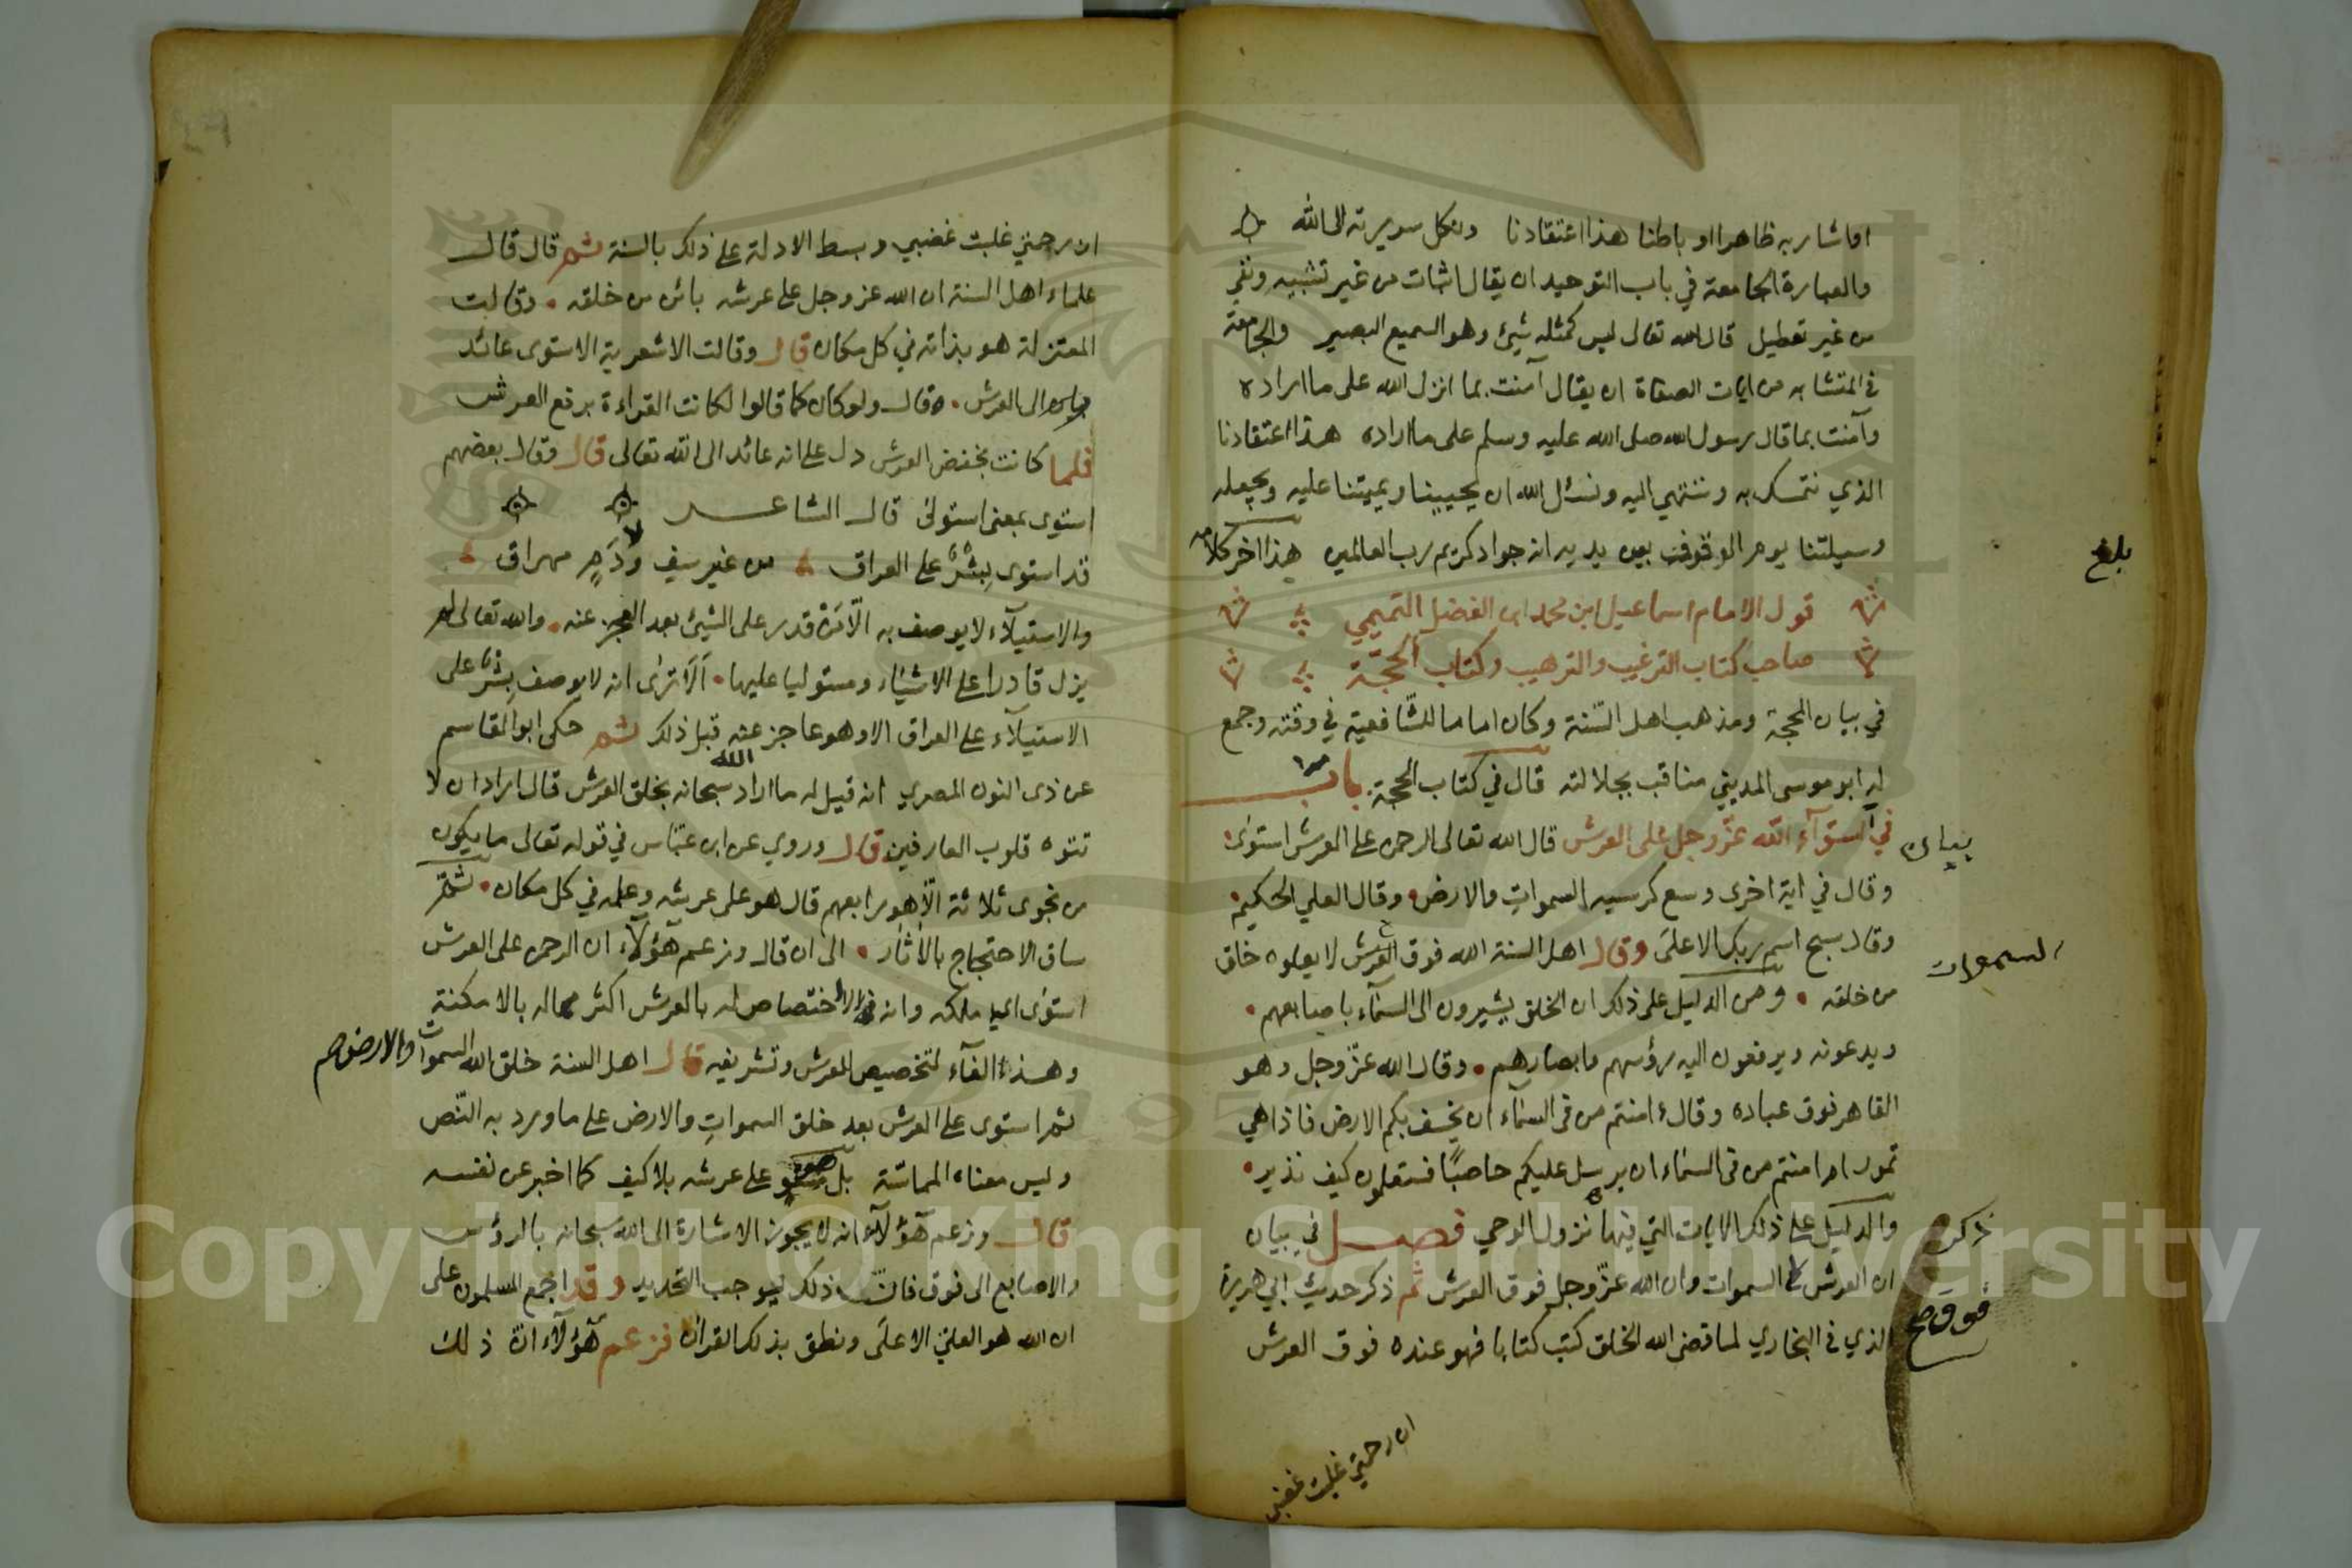 او اشار به ظاهرا او باطنا هذا اعتقادنا ونكل سريرته الى الله
والعبارة الجامعة في باب التوحيد ان يقال اثبات من غير تشبيه ونفي
من غير تعطيل قال الله تعالى ليس كمثله شيئ وهو السميع البصير والجامعة
في المتشابه من ايات الصفاة ان يقال آمنت بما انزل الله على ما اراده
وآمنت بما قال رسول الله صلى الله عليه وسلم على ما اراده هذا اعتقادنا
الذي نتمسك به وننتهي اليه ونسئل الله ان يحيينا ويميتنا عليه ويجعله
وسيلتنا يوم الوقوف بين يديه انه جواد كريم رب العالمين هذا اخر كلامه
بلغ
قول الامام اسماعيل ابن محمد ابي الفضل التميمي
صاحب كتاب الترغيب والترهيب وكتاب الحجة
في بيان المحجة ومذهب اهل السّنة وكان اماما للشافعية في وقته وجمع
له ابو موسى المديني مناقب بجلالته قال في كتاب الحجة باب
بيان
في استوآء الله عزّ وجل على العرش قال الله تعالى الرحمن على العرش استوى
وقال في اية اخرى وسع كرسيه السموات والارض وقال العلي الحكيم
وقال سبح اسم ربك الاعلى وقال اهل السنة الله فوق العرش لا يعلوه خلق
السموات
من خلقه ومن الدليل على ذلك ان الخلق يشيرون الى السمآء باصابعهم
ويدعونه ويرفعون اليه رؤسهم وابصارهم وقال الله عزّ وجل وهو
القاهر فوق عباده وقال ءامنتم من في السمآء ان يخسف بكم الارض فاذا هي
تمور ام امنتم من في السماء ان يرسل عليكم حاصبًا فستعلمون كيف نذير
والدليل على ذلك الايات التي فيها نزول الوحي فصل في بيان
ذكر
ان العرش السموات وان الله عزّ وجل فوق العرش ثم ذكر حديث ابي هريرة
فوق صح
الذي في البخاري لما قضى الله الخلق كتب كتابا فهو عنده فوق العرش
ان رحمتي غلبت غضبي
ان رحمتي غلبت غضبي وبسط الادلة على ذلك بالسنة ثم قال قال
علماء اهل السنة ان الله عز وجل على عرشه بائن من خلقه وقالت
المعتزلة هو بذاته في كل مكان قال وقالت الاشعرية الاستوى عائد
الى العرش قال ولو كان كما قالوا لكانت القراءة برفع العرش
فلما كانت بخفض العرش دل على انه عائد الى الله تعالى قال وقال بعضهم
استوى بمعنى استولى قال الشاعر
قد استوى بِشْرٌ على العراق من غير سيف ودَمٍ مهراق
والاستيلآء لا يوصف به الّا من قدر على الشيئ بعد العجز عنه والله تعالى لم
يزل قادرا على الاشياء ومستوليا عليها ألا ترى انه لا يوصف بِشْرٌ على
الاستيلآء على العراق الا وهو عاجز عنه قبل ذلك ثم حكى ابو القاسم
عن ذى النون المصري انه قيل له ما اراد الله سبحانه بخلق العرش قال اراد ان لا
تتوه قلوب العارفين قال وروي عن ابن عباس في قوله تعالى ما يكون
من نجوى ثلاثة الّا هو رابعهم قال هو على عرشه وعلمه في كل مكان ثم
ساق الاحتجاج بالآثار الى ان قال وزعم هؤلآء ان الرحمن على العرش
استوى اي ملكه وانه لا اختصاص له بالعرش اكثر مما له بالامكنة
وهذا الغآء لتخصيص العرش وتشريفه قال اهل السنة خلق الله السموات والارض صح
ثم استوى على العرش بعد خلق السموات والارض على ما ورد به النّص
وليس معناه المماسّة بل هو على عرشه بلا كيف كما اخبر عن نفسه
قال وزعم هؤلآء انه لا يجوز الاشارة الى الله سبحانه بالرؤس
والاصابع الى فوق فان ذلك يوجب التحديد وقد اجمع المسلمون على
ان الله هو العليّ الاعلى ونطق بذلك القرآن فزعم هؤلآء انّ ذلك
Copyright © King Saud University
1957